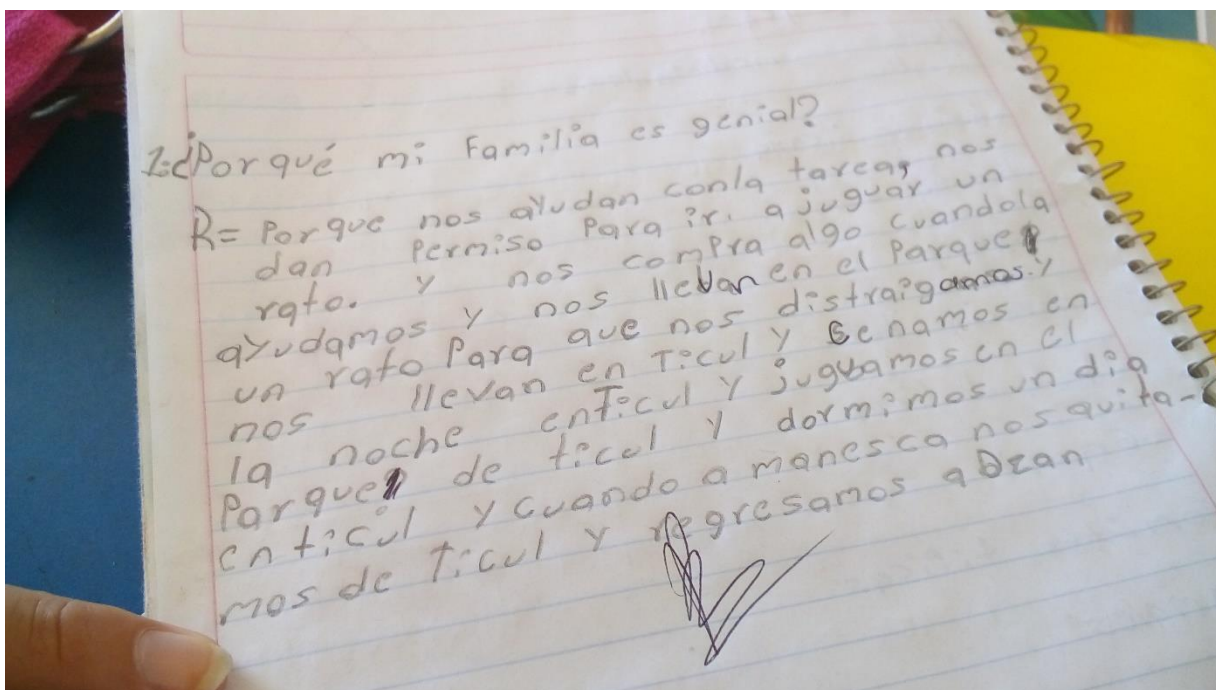 1-¿Por qué mi Familia es genial?
R= Porque nos ayudan conla tarea, nos
dan permiso Para ir. a juguar un
rato. y nos compra algo cuandola
ayudamos y nos llevan en el Parque
un rato Para que nos distraigamos. y
nos llevan en Ticul y Cenamos en
la noche enTicul y juguamos en el
Parque de ticul y dormimos un dia
en ticul y cuando a manesca nos quita-
mos de Ticul y regresamos a Dzan